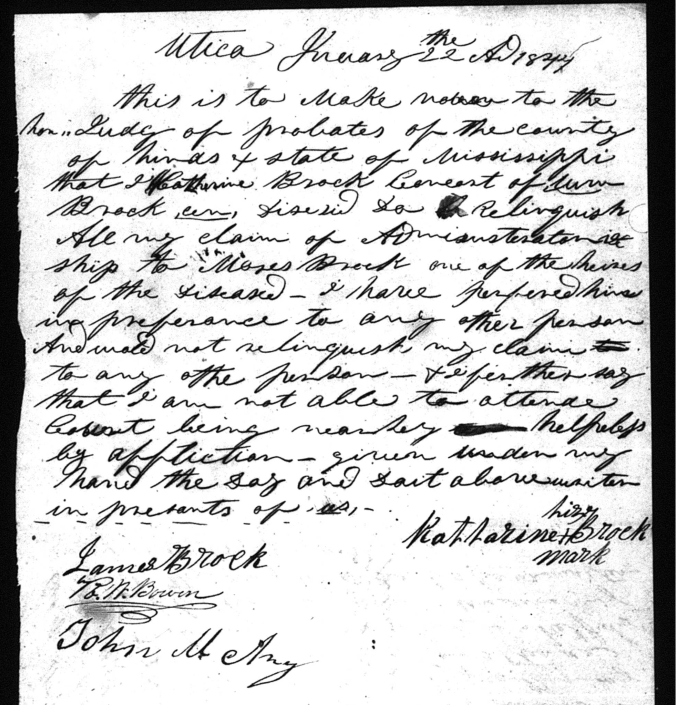 Utica Jnuary the 22 AD 184
this is to Make to the
hon,, Judg of probates of the county
of hinds & state of Mississippi
that I Catherine Brock Concort of Wm
Brock, cen, disesed do Relinguish
All my claim of Administerator
ship to Moses Brock one of the heires
of the diseased – I have perfered him
in preferance to any other person
And wold not relinguish my claim
to any othe person – & I ferther say
that I am not able to attende
Court being nearley helpless
by affliction – given under my
hand the day and dait above writen
in presants of us, –
his
Katharine + Brock
mark
James Brock
W. Bowen
John M Any